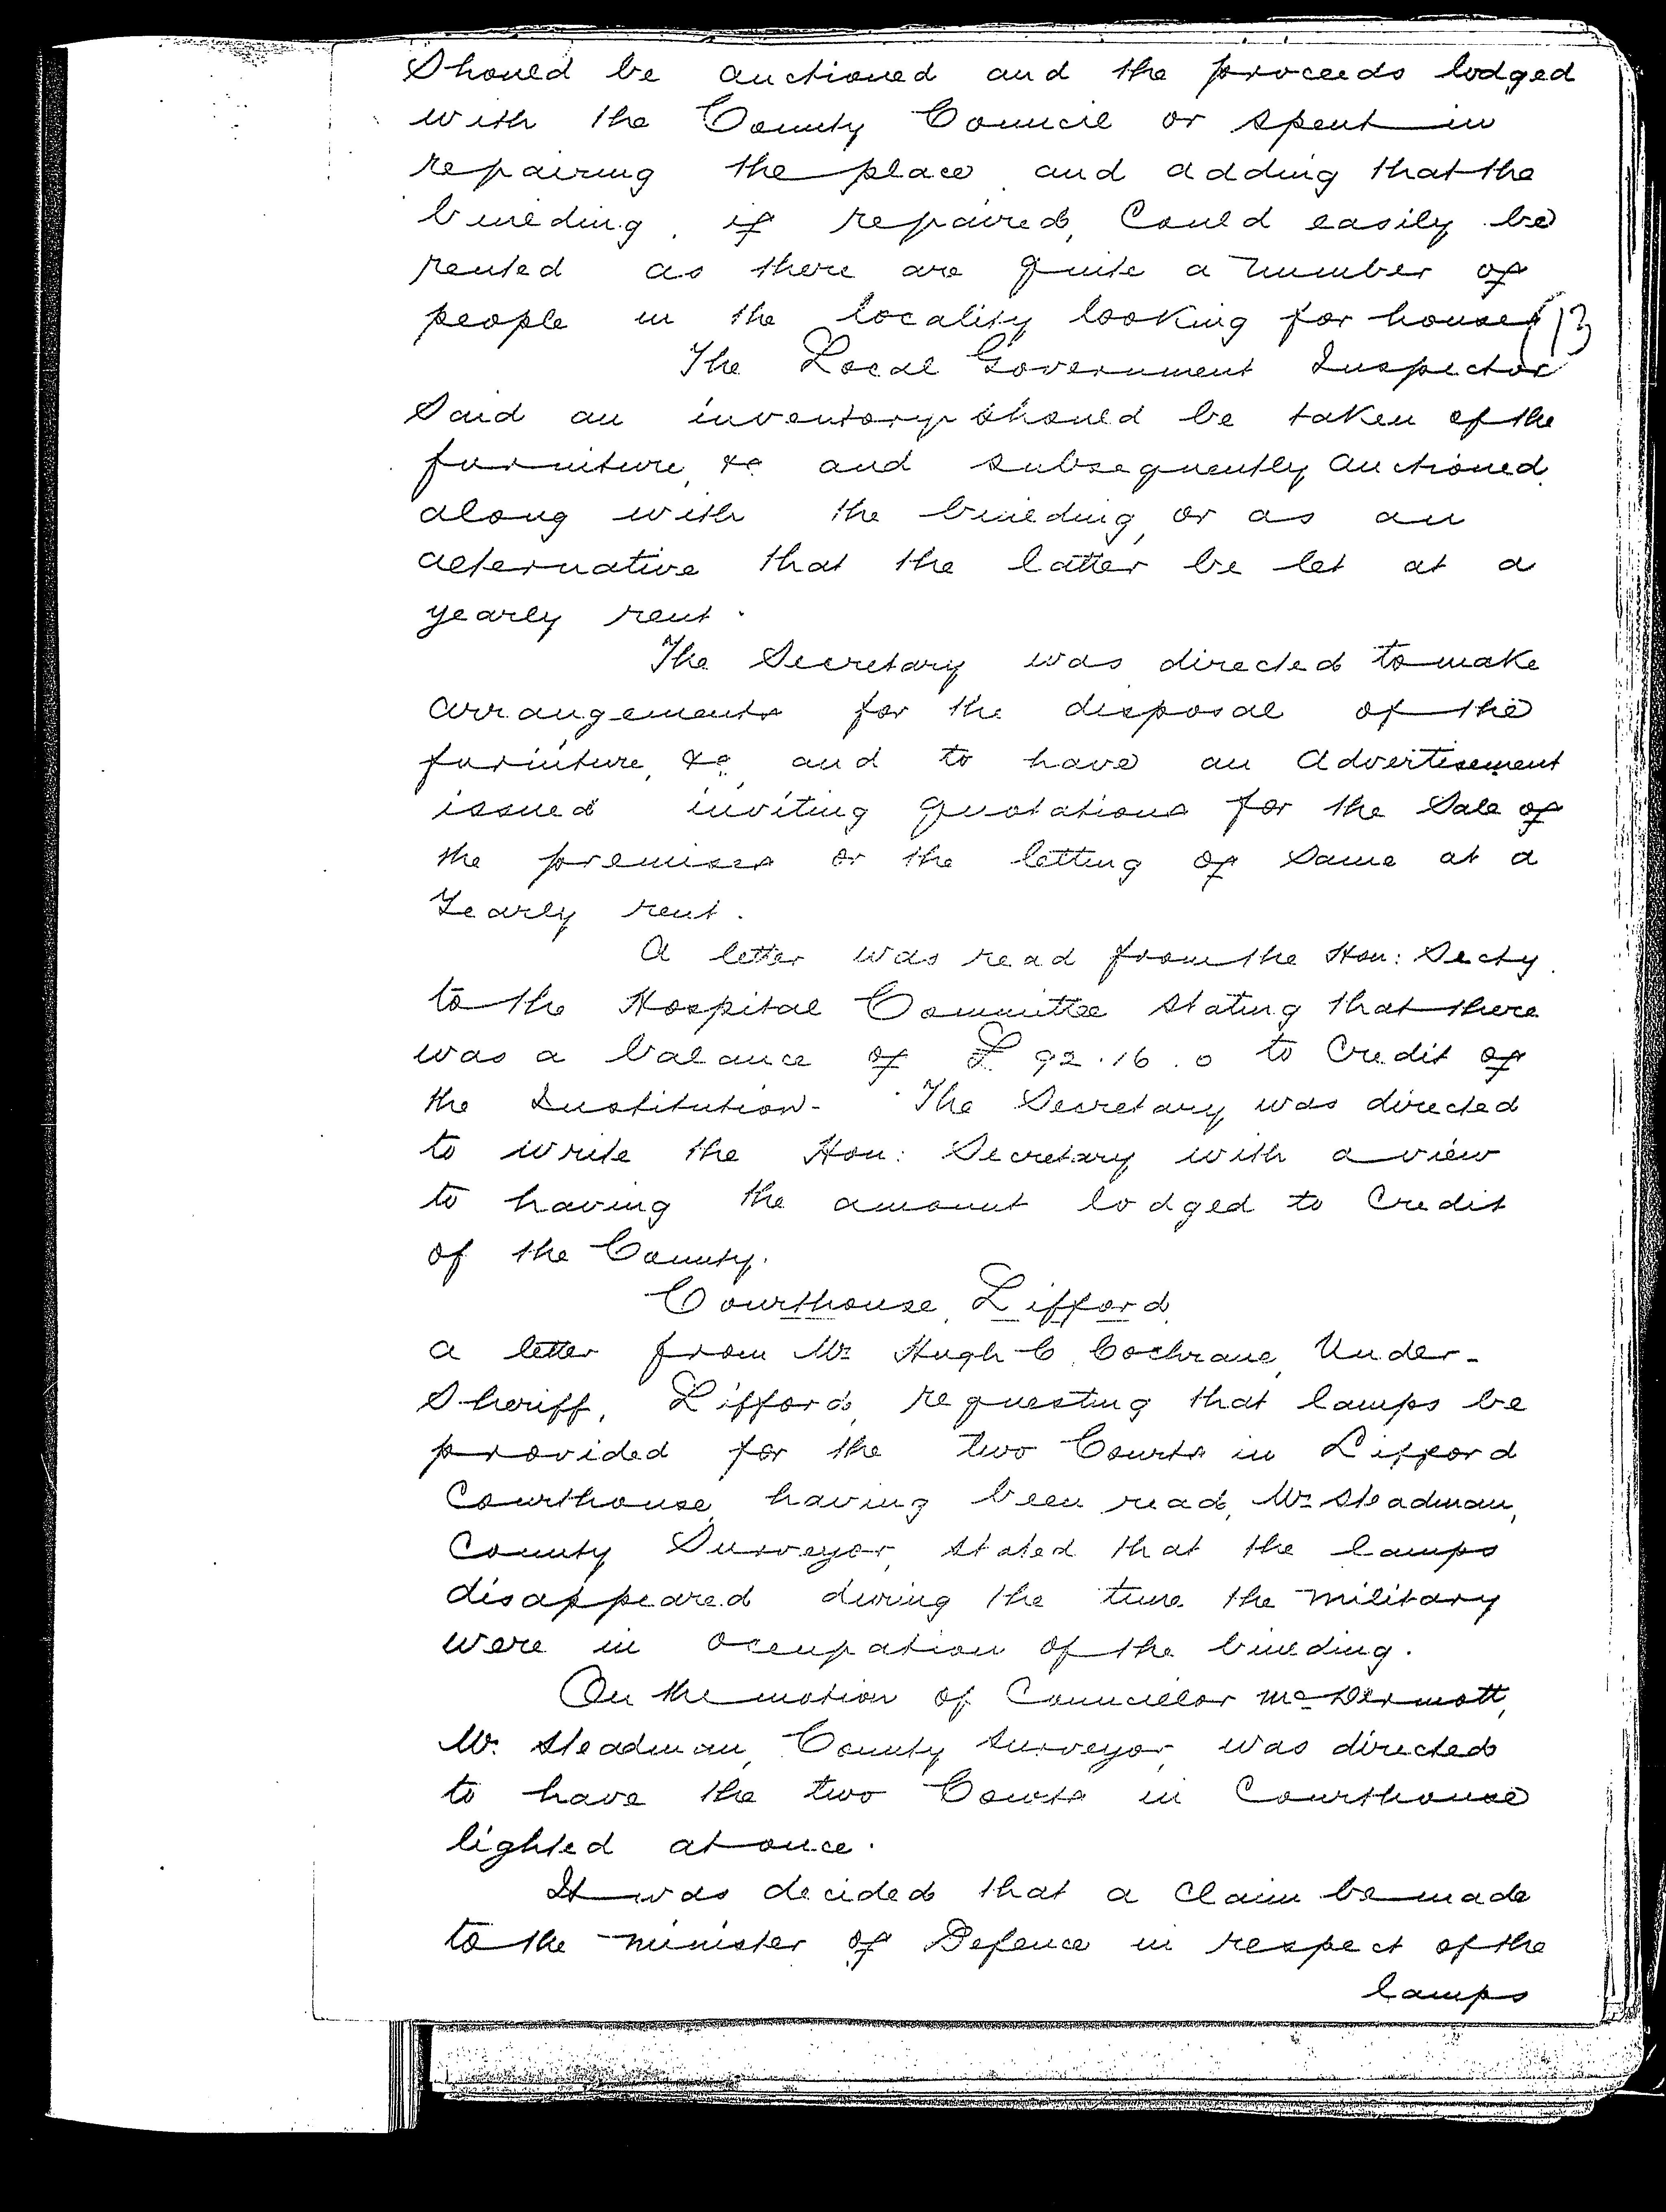 Should be auctioned and the proceeds lodged
with the County Council or spent in
repairing the place and adding that the
building, if repaired, Could easily be
rented as there are quite a number of
people in the locality looking for houses
The Local Government Inspector
Said an inventory should be taken of the
furniture, &c and subsequently auctioned
along with the building, or as an
alternative that the latter be let at a
yearly rent.
The Secretary was directed to make
arrangements for the disposal of the
furniture, &c, and to have an Advertisement
issued inviting quotations for the Sale of
the premises or the letting of Same at a
Yearly rent.
A letter was read from the Hon: Secty.
to the Hospital Committee stating that there
was a balance of £92.16.0 to Credit of
the Institution. The Secretary was directed
to write the Hon: Secretary with a view
to having the amount lodged to Credit
of the County.
Courthouse, Lifford.
A letter from Mr Hugh C. Cochrane, Under-
Sheriff, Lifford, requesting that lamps be
provided for the two Courts in Lifford
Courthouse, having been read, Mr Steadman,
County Surveyor, stated that the lamps
disappeared during the time the Military
were in occupation of the building.
On the motion of Councillor McDermott,
Mr. Steadman, County Surveyor, was directed
to have the two Courts in Courthouse
lighted at once.
It was decided that a Claim be made
to the Minister of Defence in respect of the
lamps